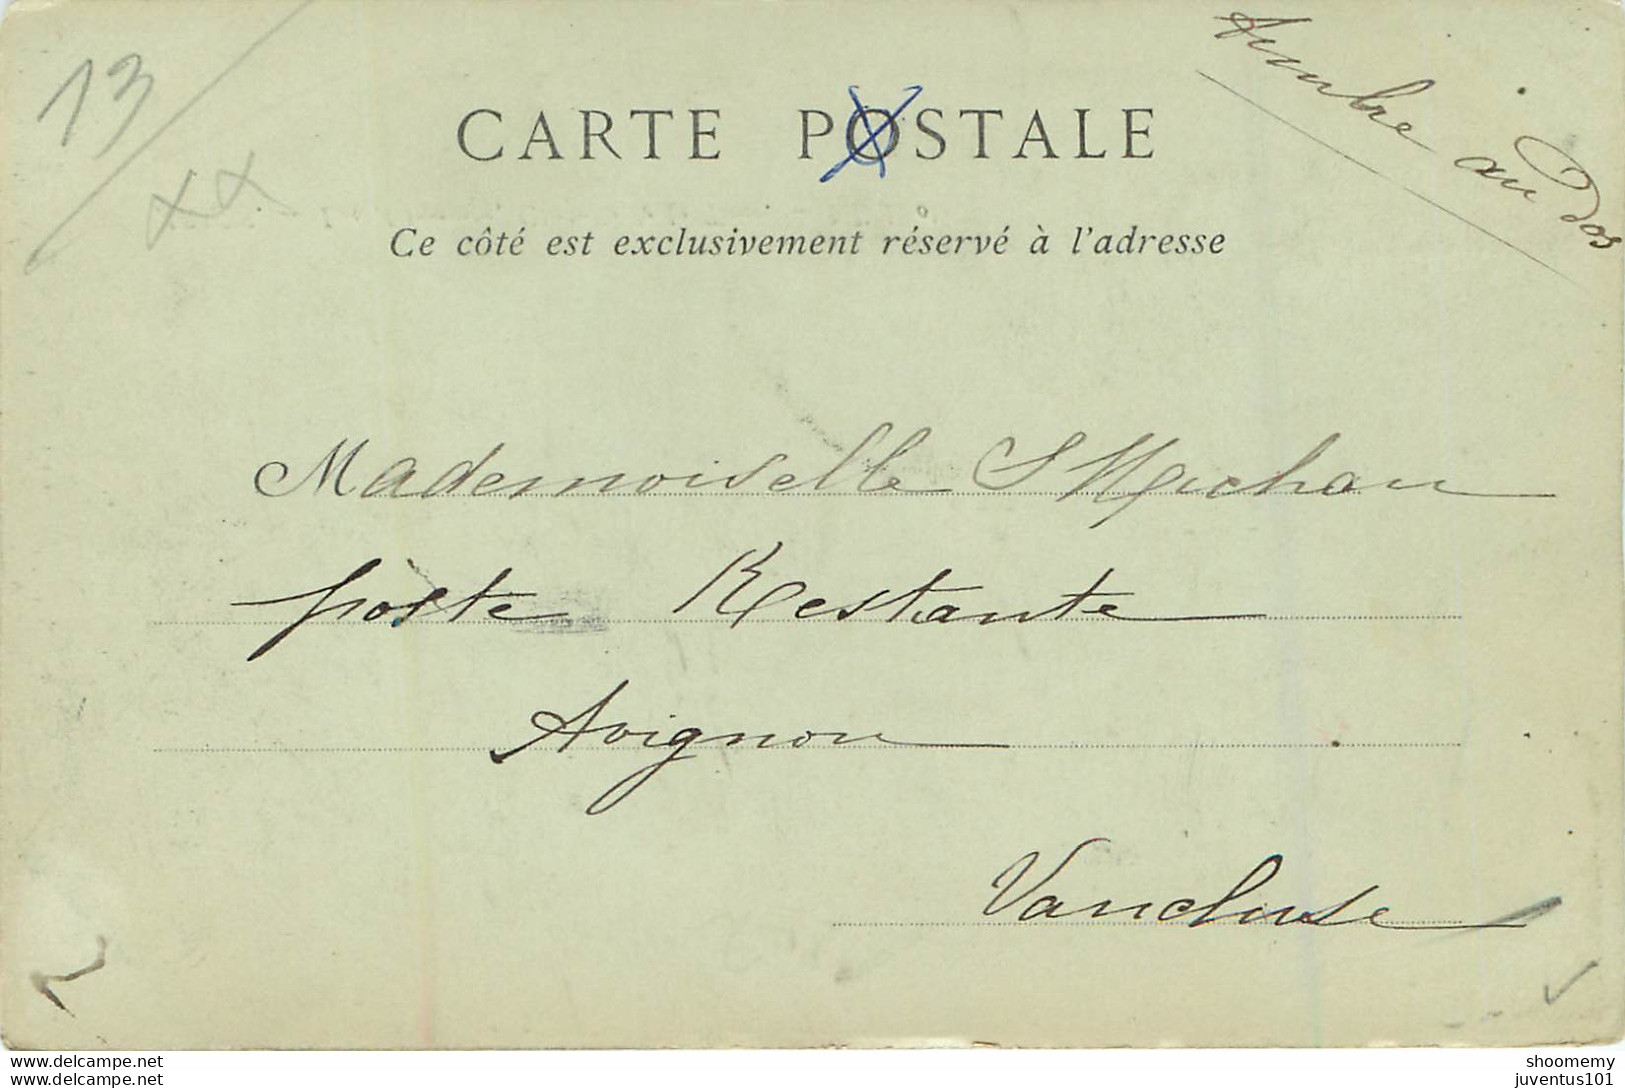 13
xx
CARTE POSTALE
Timbre au Dos
Ce côté est exclusivement réservé à l'adresse
Mademoiselle S
poste Restante
Avignon
Vaucluse
www.delcampe.net
www.delcampe.net
shoomemy
juventus101